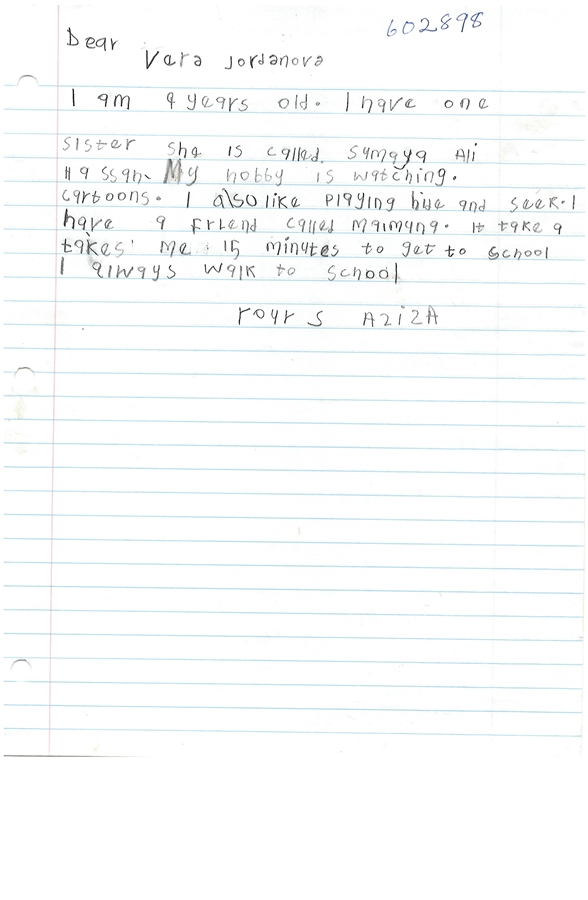 602898
Dear
Vera Jordanova
I am 9 years old. I have one
sister she is called. Sumaya Ali
Hassan. My hobby is watching.
cartoons. I also like playing hide and seek. I
have a friend called Maimuna. It take a
takes' me 15 minutes to get to school
I always walk to school
Yours AZiZA